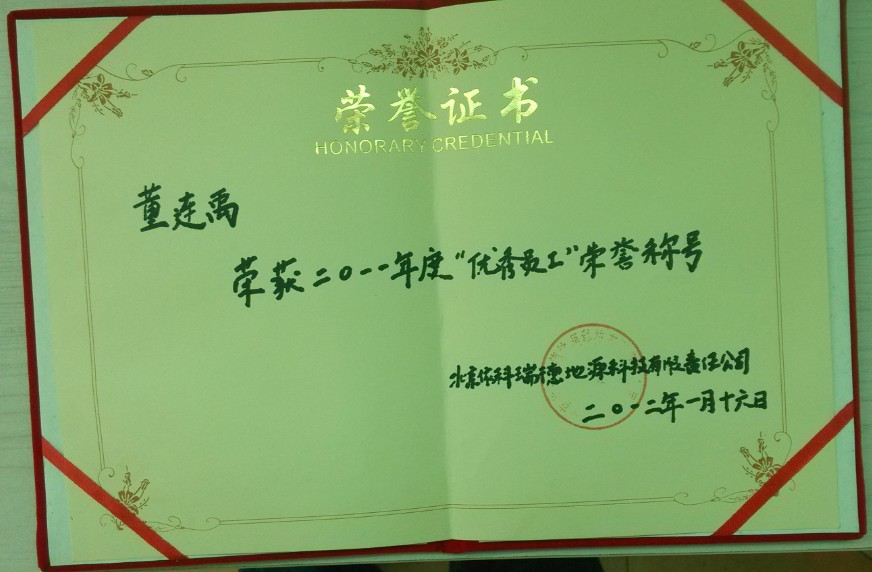 荣誉证书
HONORARY CREDENTIAL
董连禹
荣获二〇一一年度“优秀员工”荣誉称号
北京依科瑞德地源科技有限责任公司
二〇一二年一月十六日